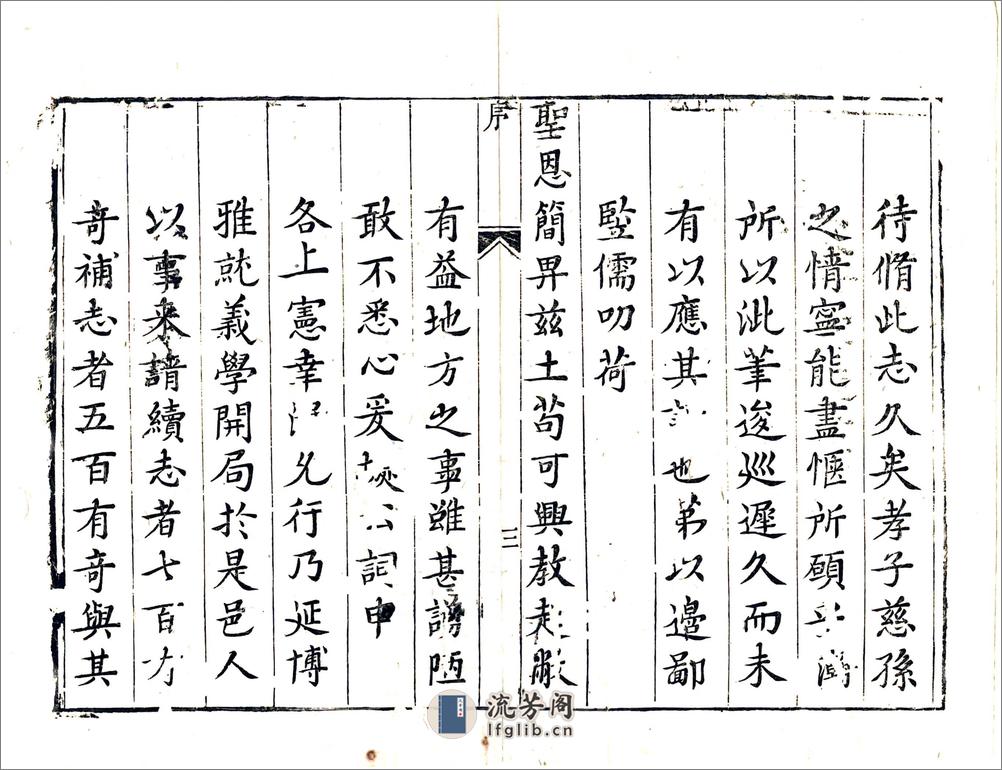 待脩此志久矣孝子慈孫
之情寍能盡愜所願
所以泚筆逡巡遲久而未
有以應其也第以邉鄙
竪儒叨荷
聖恩簡畀兹土茍可興教起敝
序
三
有益地方之事雖甚謭陋
敢不悉心爰公詞申
各上憲幸允行乃延博
雅就義學開局於是邑人
以事来請續志者七百有
竒補志者五百有竒與其
流芳阁
lfglib.cn